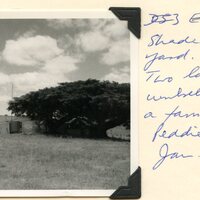 D53
Shade
yard.
Two la
umbrel
a farm
Peddie
Jan